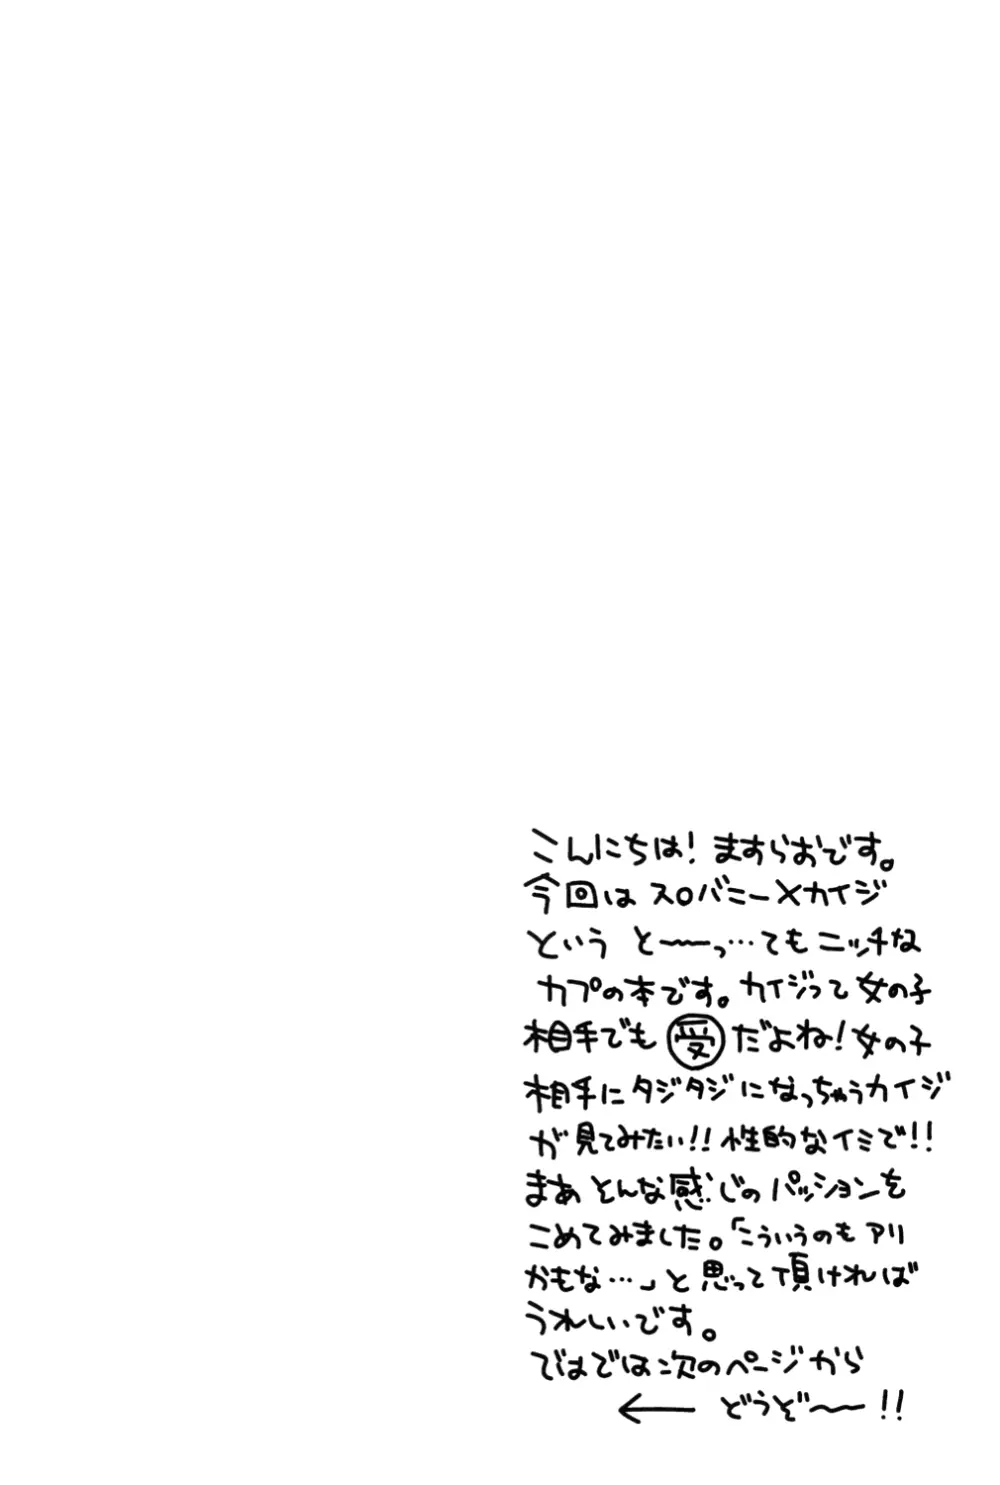 こんにちは! ますらおです。
今回は スロバニー×カイジ
という と〜〜っ…てもニッチな
カプの本です。カイジって女の子
相手でも 受 だよね!女の子
相手にタジタジになっちゃうカイジ
が見てみたい!!性的なイミで!!
まあ そんな感じのパッションを
こめてみました。「こういうのもアリ
かもな…」と思って頂ければ
うれしいです。
ではでは次のページから
← どうぞ〜〜!!